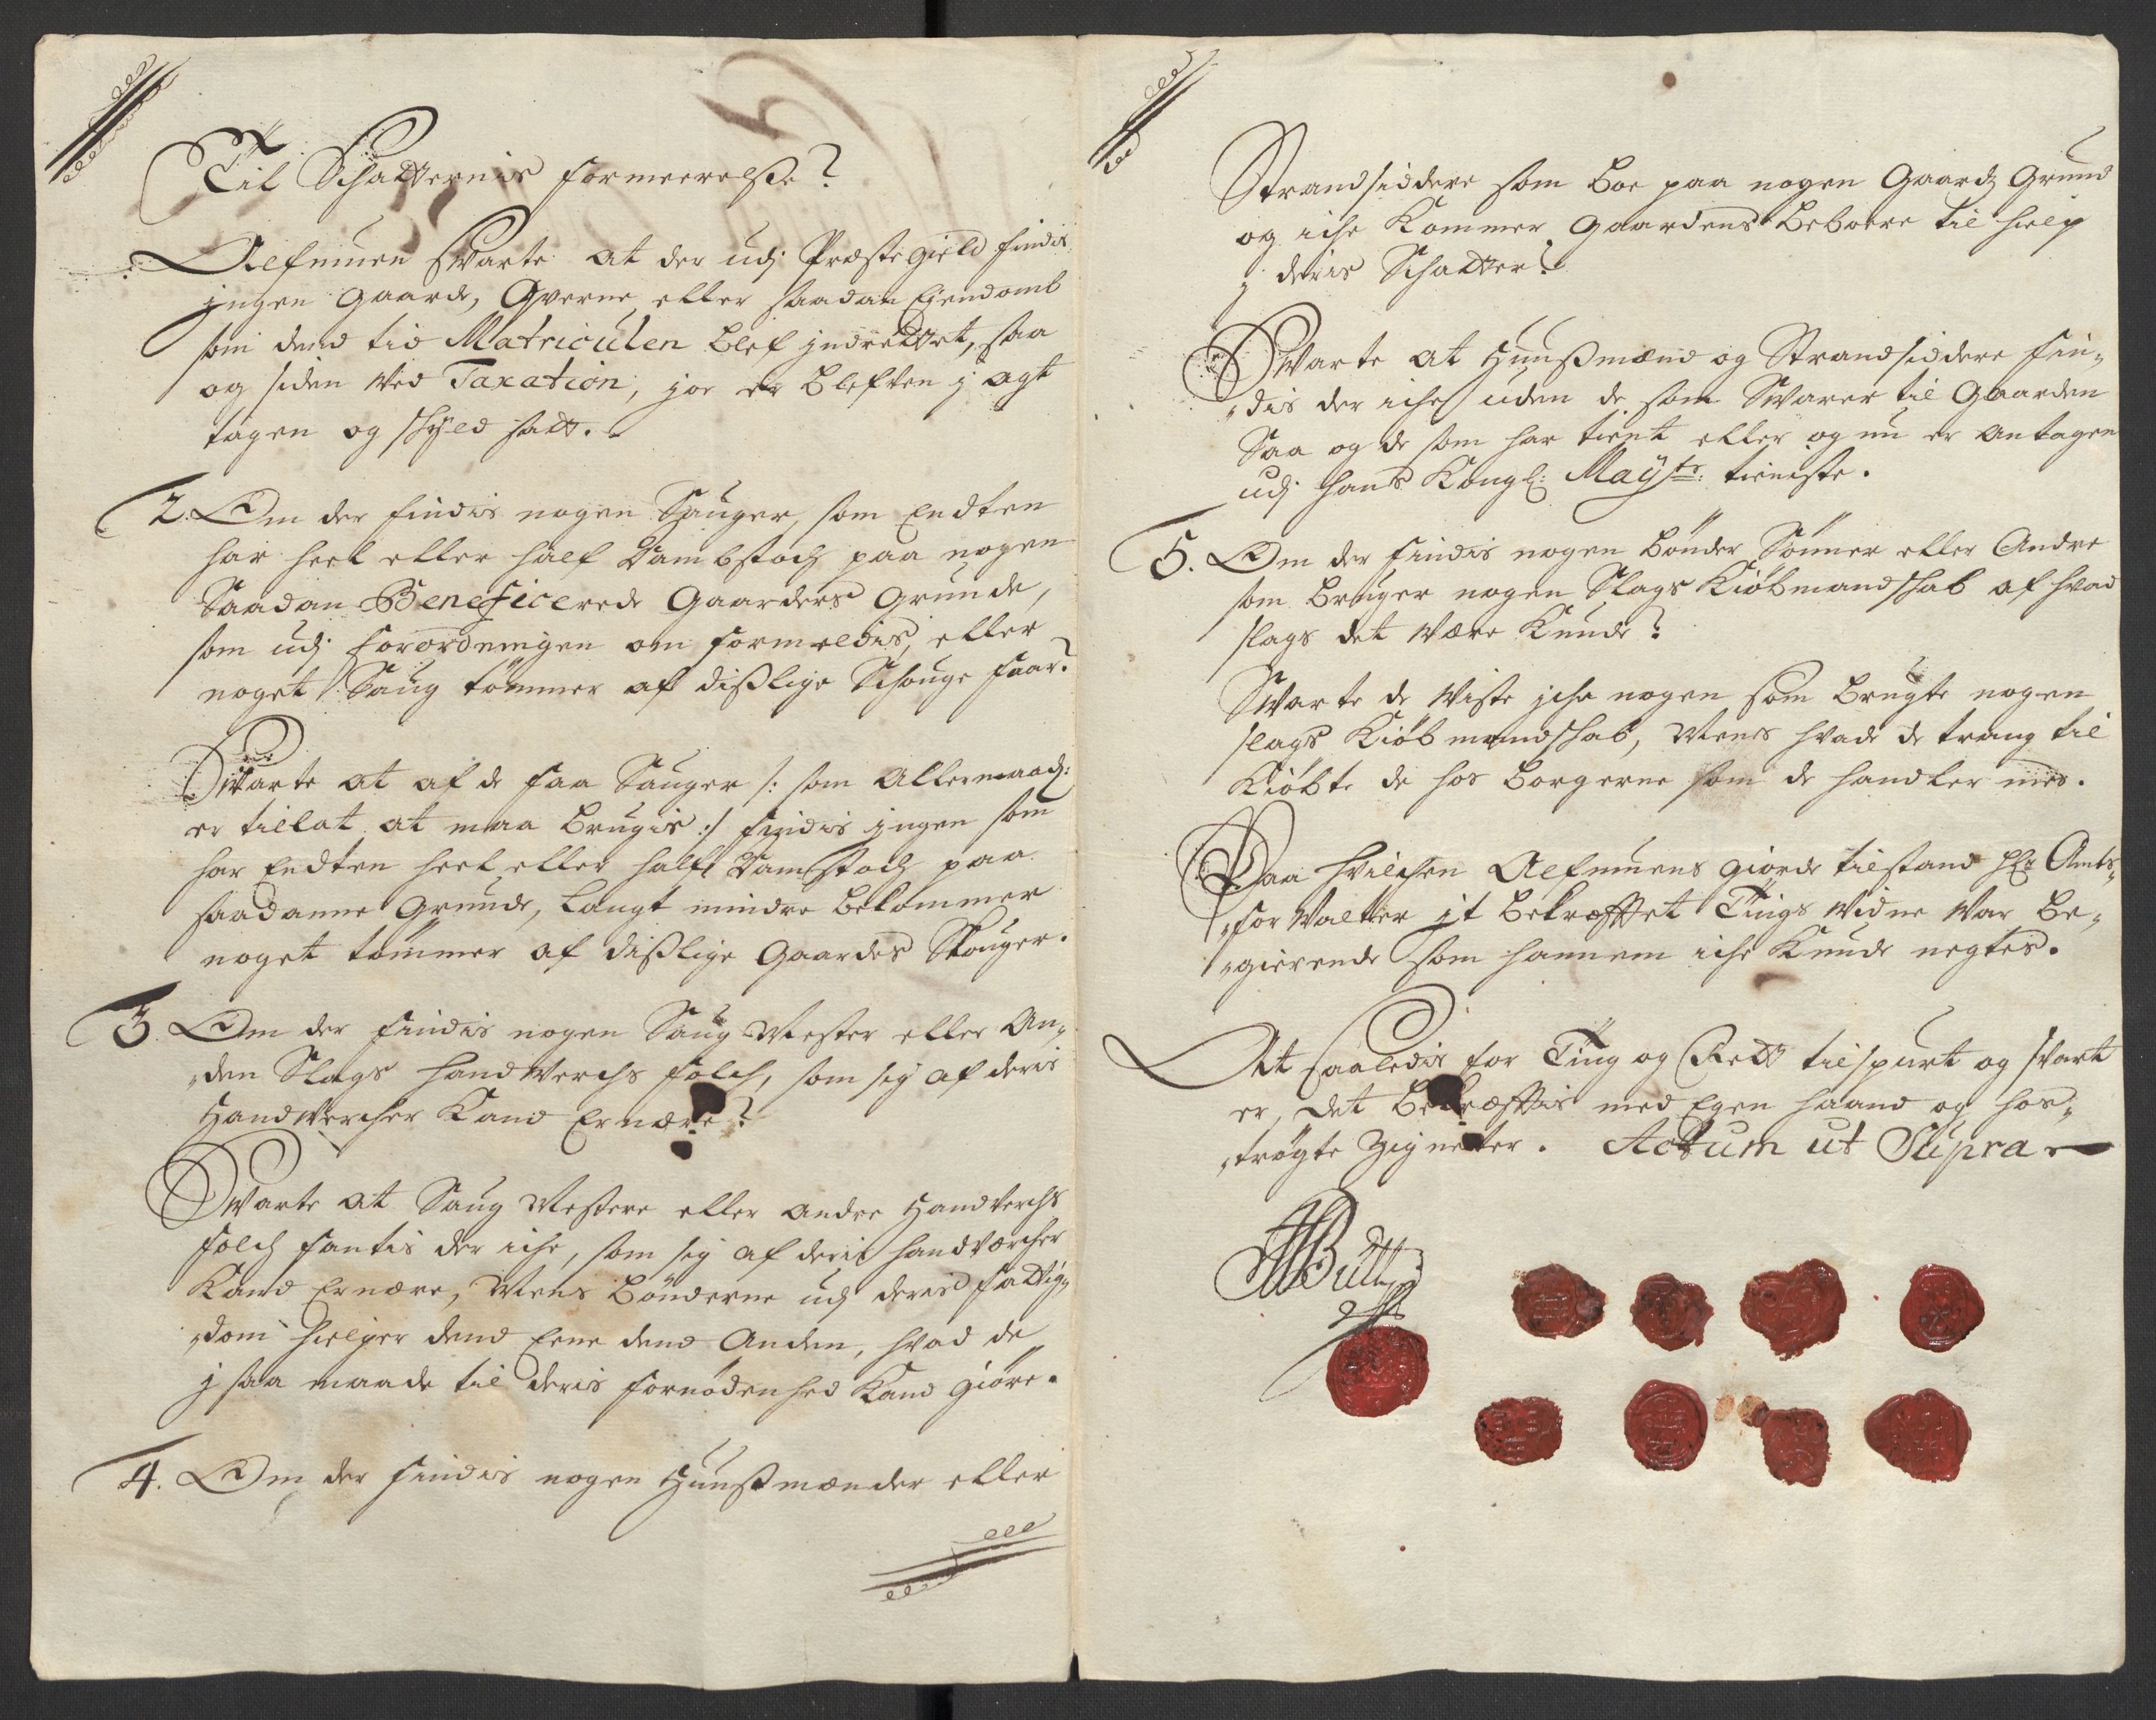 Til Schatternis formeerelße?
Allmuen Svarte at der udj Præstegield findis
jngen gaarde, Qverne eller saadan Eiendomb
som dend tid Matriculen blef jndrettet, saa
og siden ved Taxation, joe er blefven j agt
tagen og skyld satt.
2. Om der findis nogen Sauger, som Endten
har heel eller half Dambstoch paa nogen
Saadan Beneficerede Gaarders Grunde,
som udj forordningen om formeldis, eller
noget Saug tømmer af dißlige Schouge faar?
Svarte at af de faa Sauger /: som Allernaad:
er tillat at maa brugis :/ findis jngen som
har Endten heel eller half Damstoch paa
saadanne Grunde, langt mindre bekommer
noget tømmer af dißlige Gaarders Skouger.
3. Om der findis nogen Saug Mester eller An-
„den Slags Handverchs folch, som sig af deris
Handvercher Kand Ernære?
Svarte at Saug Mestere eller andre Handverchs
folch fantis der iche, som sig af deris handvercher
Kand Ernære, Mens bønderne udj deris fattig-
„dom hielper dend Eene dend Anden, hvad de
j saa maade til deris fornødenhed Kand giøre.
4. Om der findis nogen Huußmænder eller
Strandsiddere som boe paa nogen Gaards Grund
og iche Kommer Gaardens beboere til hielp
j deris Schatter?
Svarte at Huußmænd og Strandsiddere fin-
„dis der iche uden de som Svarer til Gaarden
Saa og de som har tient eller og nu er antagen
udj hans Kongl: Mayts: tieniste.
5. Om der findis nogen bønder Sønner eller Andre
som bruger nogen Slags Kiøbmandskab af hvad
slags det være Kunde?
Svarte de viste jche nogen som brugte nogen
slags Kiøbmandskab, Mens hvade de trang til
Kiøbte de hos borgerne som de handler med.
Paa hvilchen Allmuens giorde tilstand Hr Amts-
„forvalter it bekræfftet Tings vidne var be-
„gierende som hannem iche Kunde negtes.
At saaledis for Ting og Rett tilspurt og svart
er, det bekræfftis med Egen haand og hos-
„trøgte Zignetter. Actum ut Supra